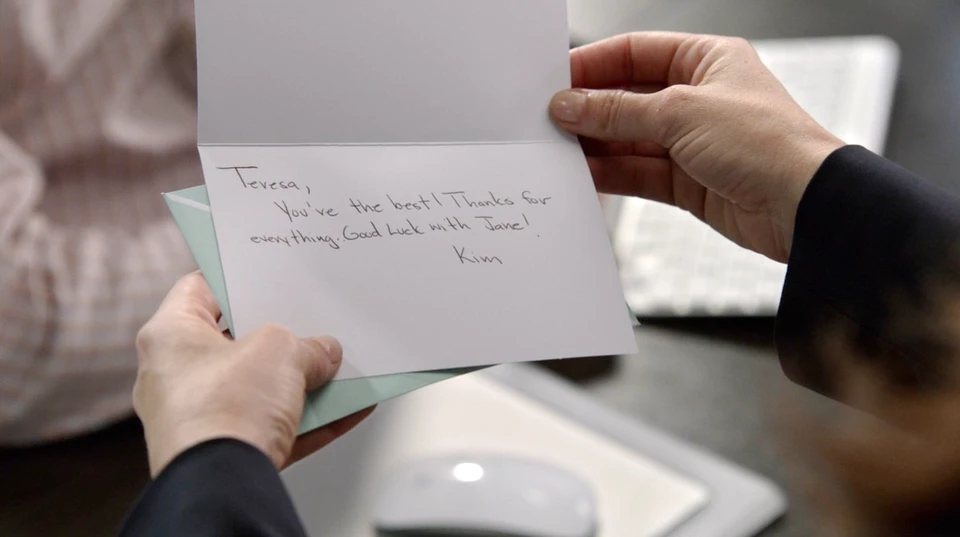 Teresa,
You've the best! Thanks for
everything. Good Luck with Jane!
Kim